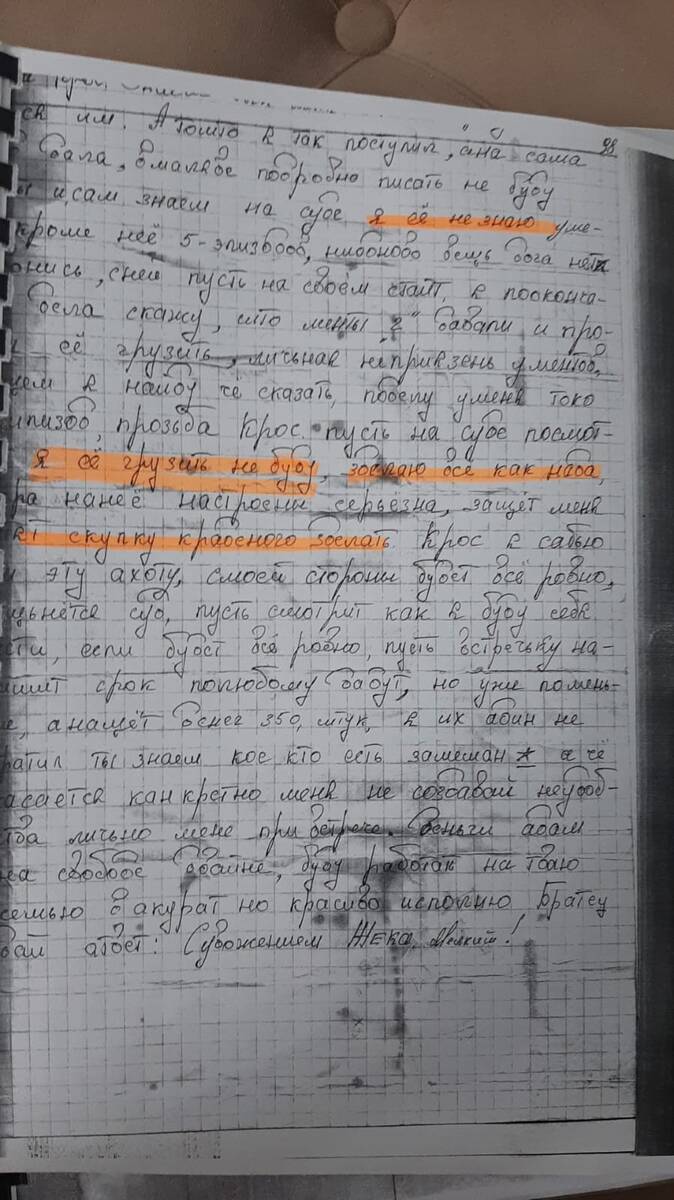 ся им. А тошто я так поступил, ана сама 98
дала, вмалябе подробно писать не буду
и, сам знаем на суде, я её не знаю уме-
кроме неё 5-эпизодов, ниодново вещь дога нет
онись, снею пусть на своём стаит, я пооконча-
дела скажу, што менты её давали и про-
её грузить, личьная неприязень ументов,
чем я найду чё сказать, поделу уменя токо
эпизод, прозьба Крос. пусть на суде посмот-
Я её грузить не буду, зделаю всё как нада,
ра нанеё настроены серьёзна, защёт меня
скупку краденого зделать. Крос я сабью
эту ахоту, смоей стороны будет всё ровно,
суд, пусть смотрит как я буду себя
сти, если будет всё ровно, пусть встречьку на-
срок полюбому дадут, но уже помень-
е, а нащёт денег 350, штук, я их адин не
ратил ты знаем кое кто есть замеман * а чё
асается канкретно меня не создавай неудоб-
тва лично мене при встрече. Деньги адам
на свободе вдайне, буду работаю на тваю
семью вакурат но красиво исполню Братец
дай атвет: Суважением Жека, Мелкий!